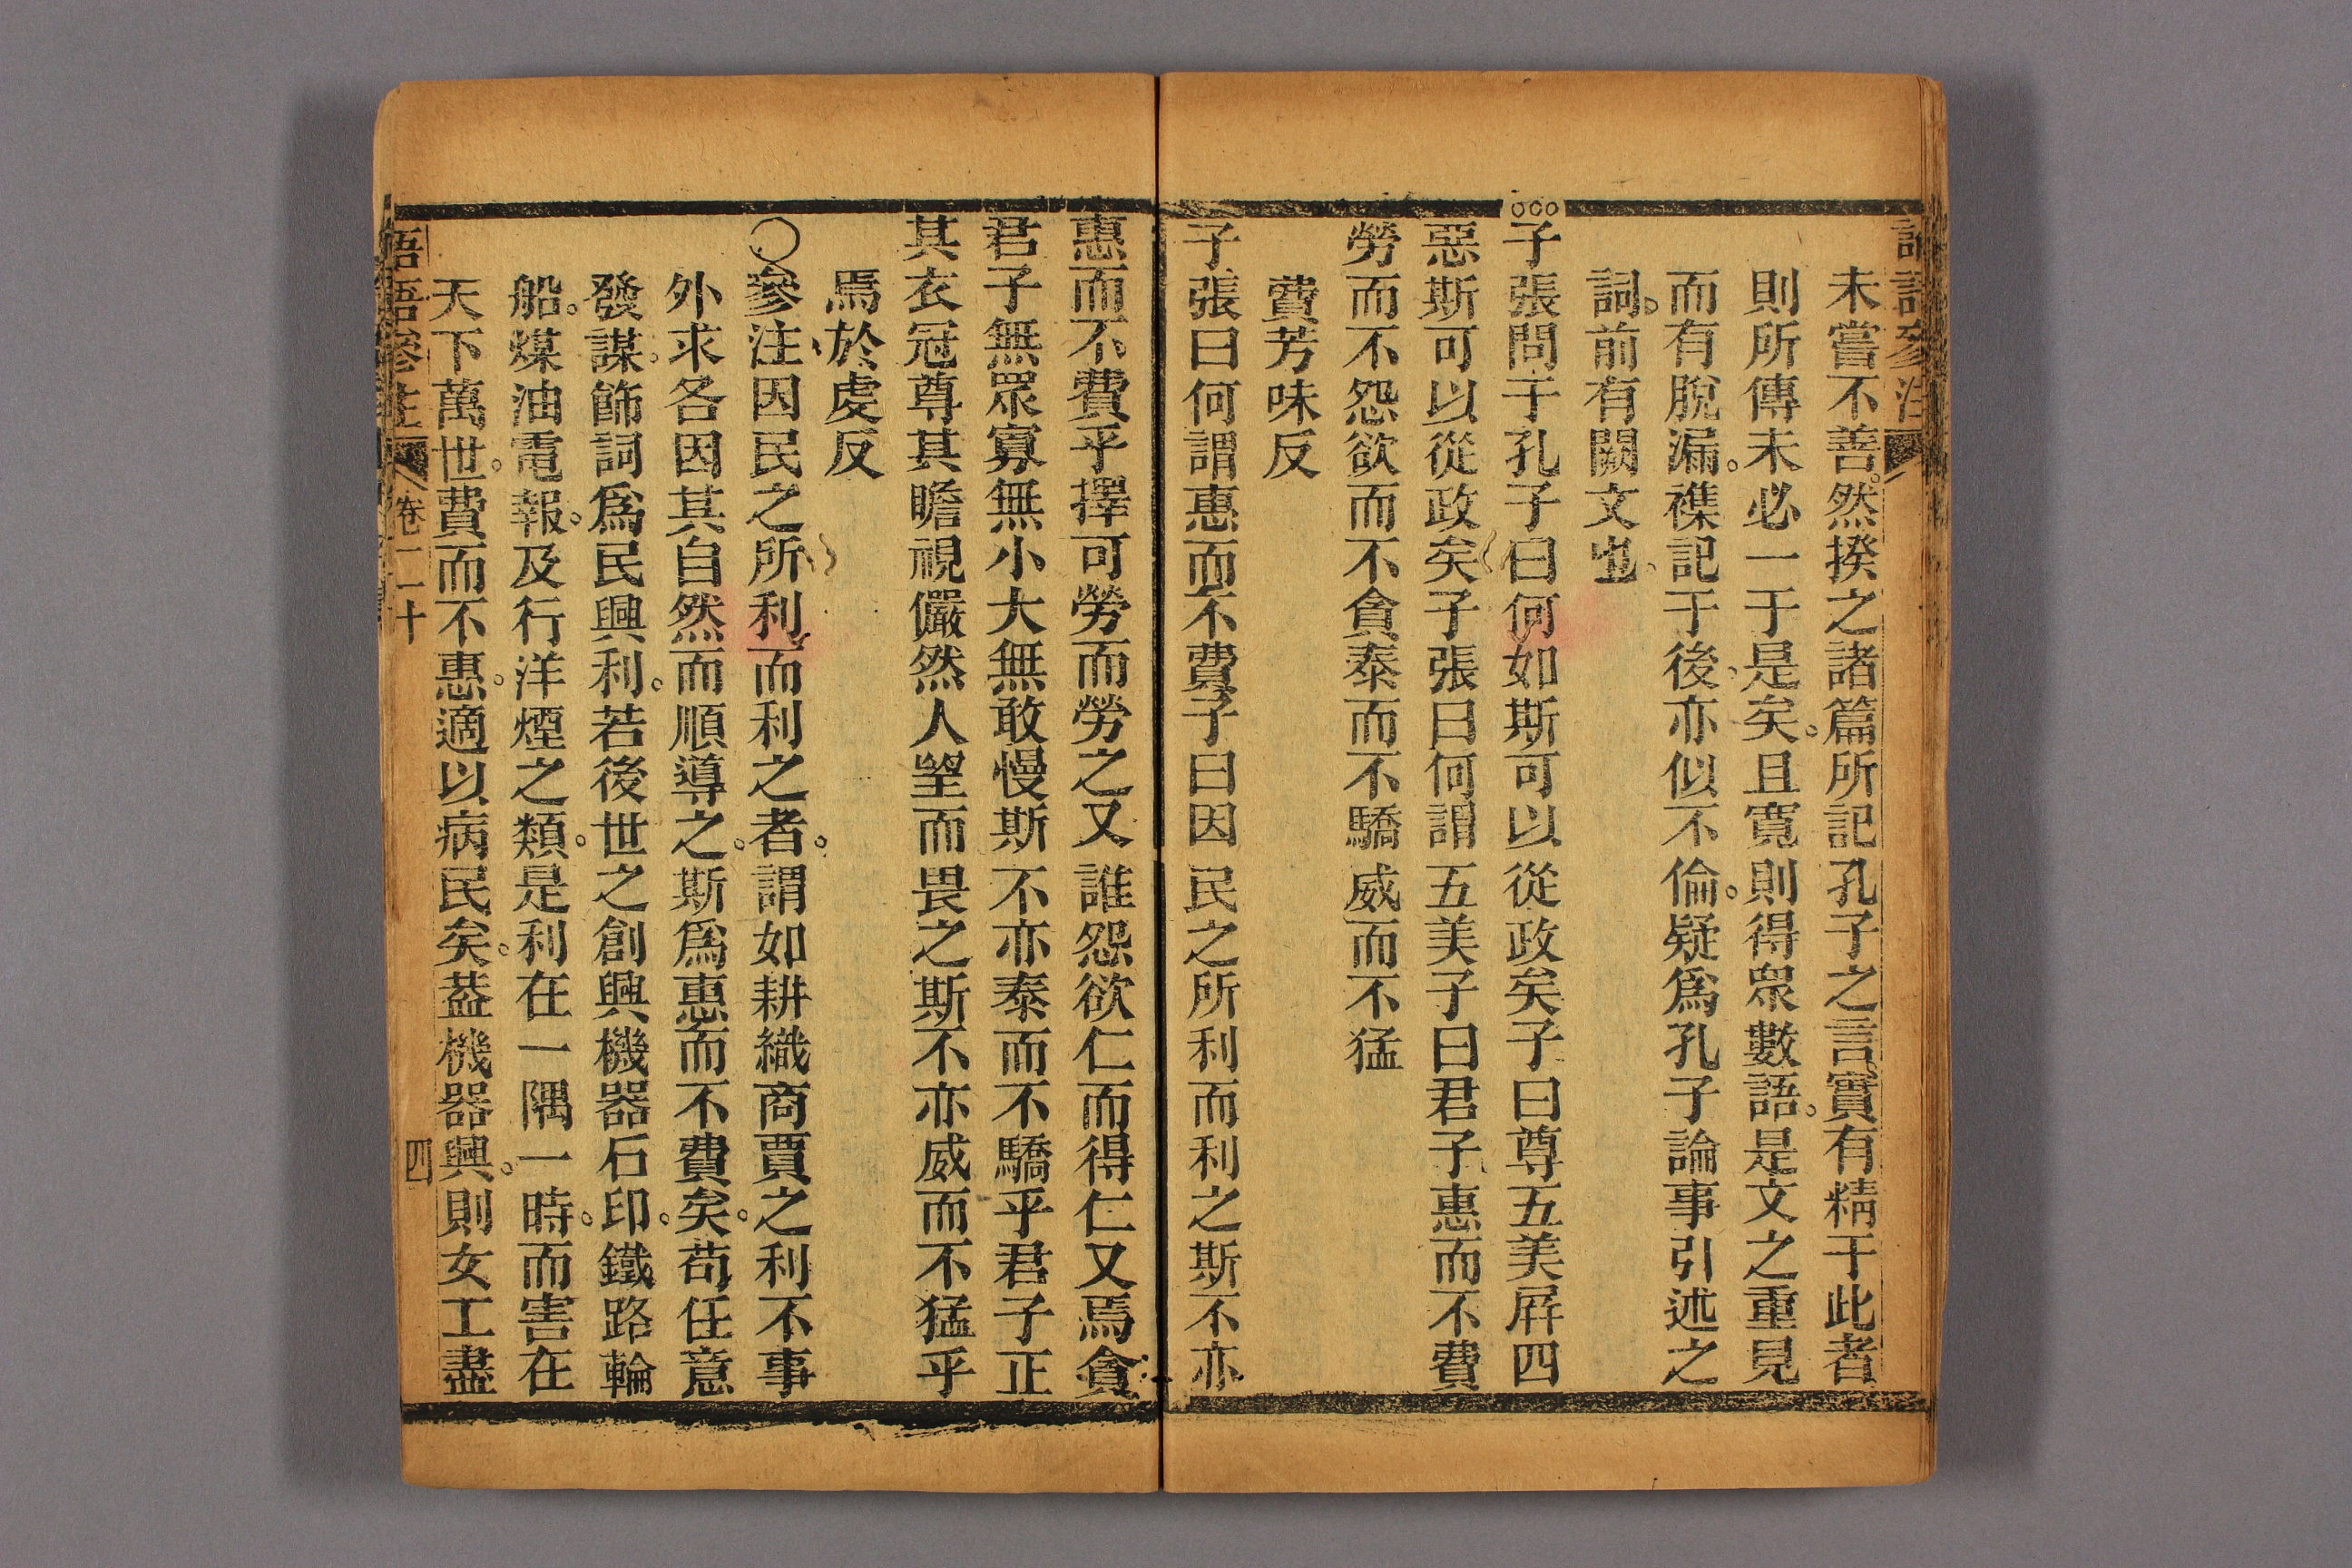 未嘗不善。然揆之諸篇所記孔子之言實有精于此者
則所傳未必一于是矣。且寬則得眾數語。是文之重見
而有脫漏。襍記于後亦似不倫。疑爲孔子論事引述之
詞。前有闕文也。
子張問于孔子曰何如斯可以從政矣子曰尊五美屛四
惡斯可以從政矣子張曰何謂五美子曰君子惠而不費
勞而不怨欲而不貪泰而不驕威而不猛
費芳味反
子張曰何謂惠而不費子曰因民之所利而利之斯不亦
惠而不費乎擇可勞而勞之又誰怨欲仁而得仁又焉貪
君子無眾寡無小大無敢慢斯不亦泰而不驕乎君子正
其衣冠尊其瞻視儼然人望而畏之斯不亦威而不猛乎
焉於虔反
〇參注因民之所利而利之者。謂如耕織商賈之利不事
外求各因其自然而順導之。斯爲惠而不費矣。苟任意
發謀。飾詞爲民興利。若後世之創興機器石印。鐵路輪
船。煤油電報。及行洋煙之類。是利在一隅一時。而害在
天下萬世。費而不惠。適以病民矣。葢機器興。則女工盡
語參註 卷二十 四